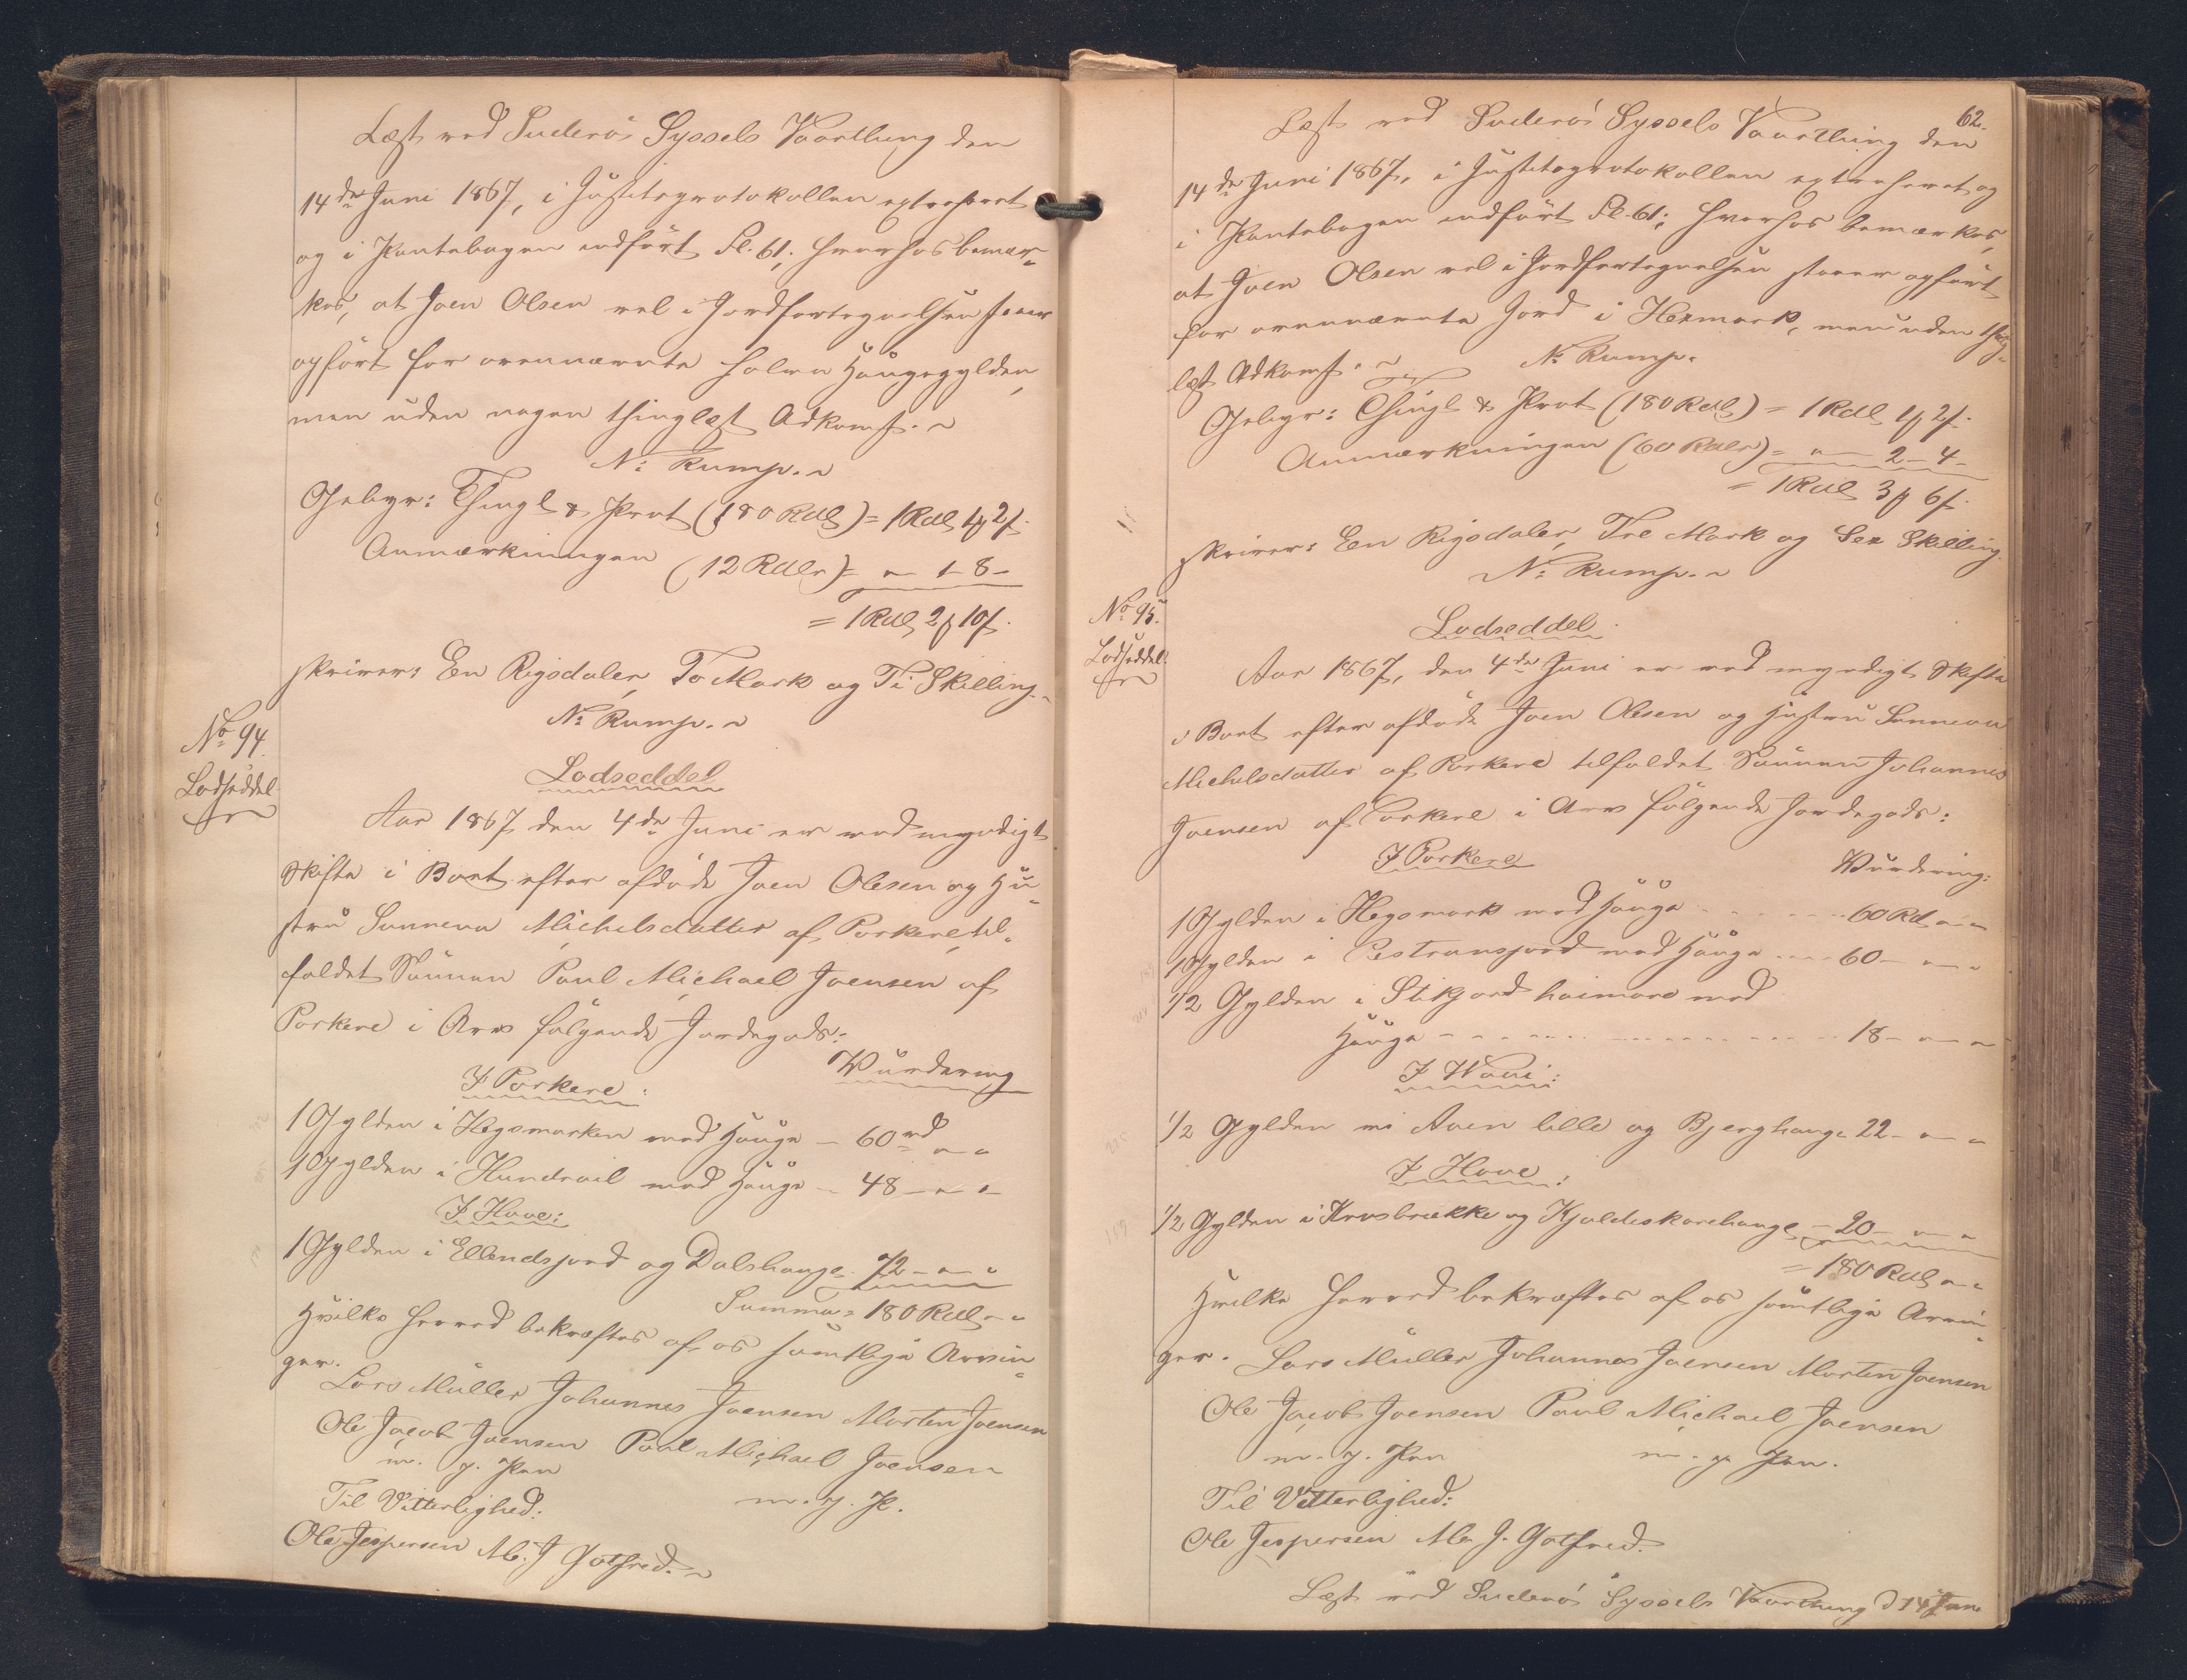 Læst ved Suderö Syssels Vaarthing den
14de Juni 1867, i Justitsprotokollen extraheret
og i Pantebogen indfört Fl. 61; hvorhos bemær-
kes, at Joen Olsen vel i Jordfortegnelsen staaer
opfört for ovennævnte halve Haugegylden,
men uden nogen thinglæst Adkomst.
N: Rump.
Gebyr: Thingl & Prot (180 Rdl) = 1 Rdl 1 ₰ 2 ʃ.
Anmærkningen (12 Rdlr) = " 1 - 8 -
= 1 Rdl 2 ₰ 10 ʃ.
skriver: En Rigsdaler, To Mark og Ti Skilling.
N: Rump.
No 94.
Lodseddel
Lodseddel
Aar 1867 den 4de Juni er ved myndigt
Skifte i Boet efter afdöde Joen Olesen og Hu-
stru Sunneva Michelsdatter af Porkere, til-
faldet Sönnen Poul Michael Joensen af
Porkere i Arv fölgende Jordegods:
I Porkere: Vurdering
1 Gylden i Hegsmarken med Hauge - 60 rd " "
1 Gylden i Hundrail med Hauge - 48 - " "
I Hove:
1 Gylden i Ellendsjord og Dalshauge 72 - " "
Summa = 180 Rdl " "
Hvilke herved bekræftes af os samtlige Arvin-
ger.
Lars Müller Johannes Joensen Morten Joensen
Ole Jacob Joensen Poul Michael Joensen
m. f. Pen m. f. P.
Til Vitterlighed:
Ole Jespersen M. J Gotfred.
62.
Læst ved Suderö Syssels Vaarthing den
14de Juni 1867, i Justitsprotokollen extraheret og
i Pantebogen indfört Fl. 61; hvorhos bemærkes,
at Joen Olsen vel i Jordfortegnelsen staaer opfört
for ovennævnte Jord i Hexmark, men uden thing-
læst Adkomst. N: Rump.
Gebyr: Thingl & Prot (180 Rdl) = 1 Rdl 1 ₰ 2 ʃ.
Anmærkningen (60 Rdlr) = " 2 - 4 -
= 1 Rdl 3 ₰ 6 ʃ.
skriver: En Rigsdaler, Tre Mark og Sex Skilling.
N: Rump.
No 95.
Lodseddel.
Lodseddel
Aar 1867, den 4de Juni er ved myndigt Skifte
i Boet efter afdöde Joen Olesen og Hustru Sunneva
Michelsdatter af Porkere tilfaldet Sönnen Johannes
Joensen af Porkere i Arv fölgende Jordegods:
I Porkere Vurdering:
1 Gylden i Hegsmark med Hauge 60 Rd " "
1 Gylden i Pestransjord med Hauge 60 - " "
1/2 Gylden i Stikjord heimare med
Hauge 18 - " "
I Waui:
1/2 Gylden mi Aaen lille og Bjerghauge 22 - " "
I Hove:
1/2 Gylden i Krosbrekke og Kjaldeskorehauge - 20 - " "
= 180 Rdl " "
Hvilke herved bekræftes af os samtlige Arvin-
ger. Lars Müller Johannes Joensen Morten Joensen
Ole Jacob Joensen Poul Michael Joensen
m. f. Pen m. f. Pen.
Til Vitterlighed:
Ole Jespersen M. J. Gotfred.
Læst ved Suderö Syssels Vaarthing d 14 Juni